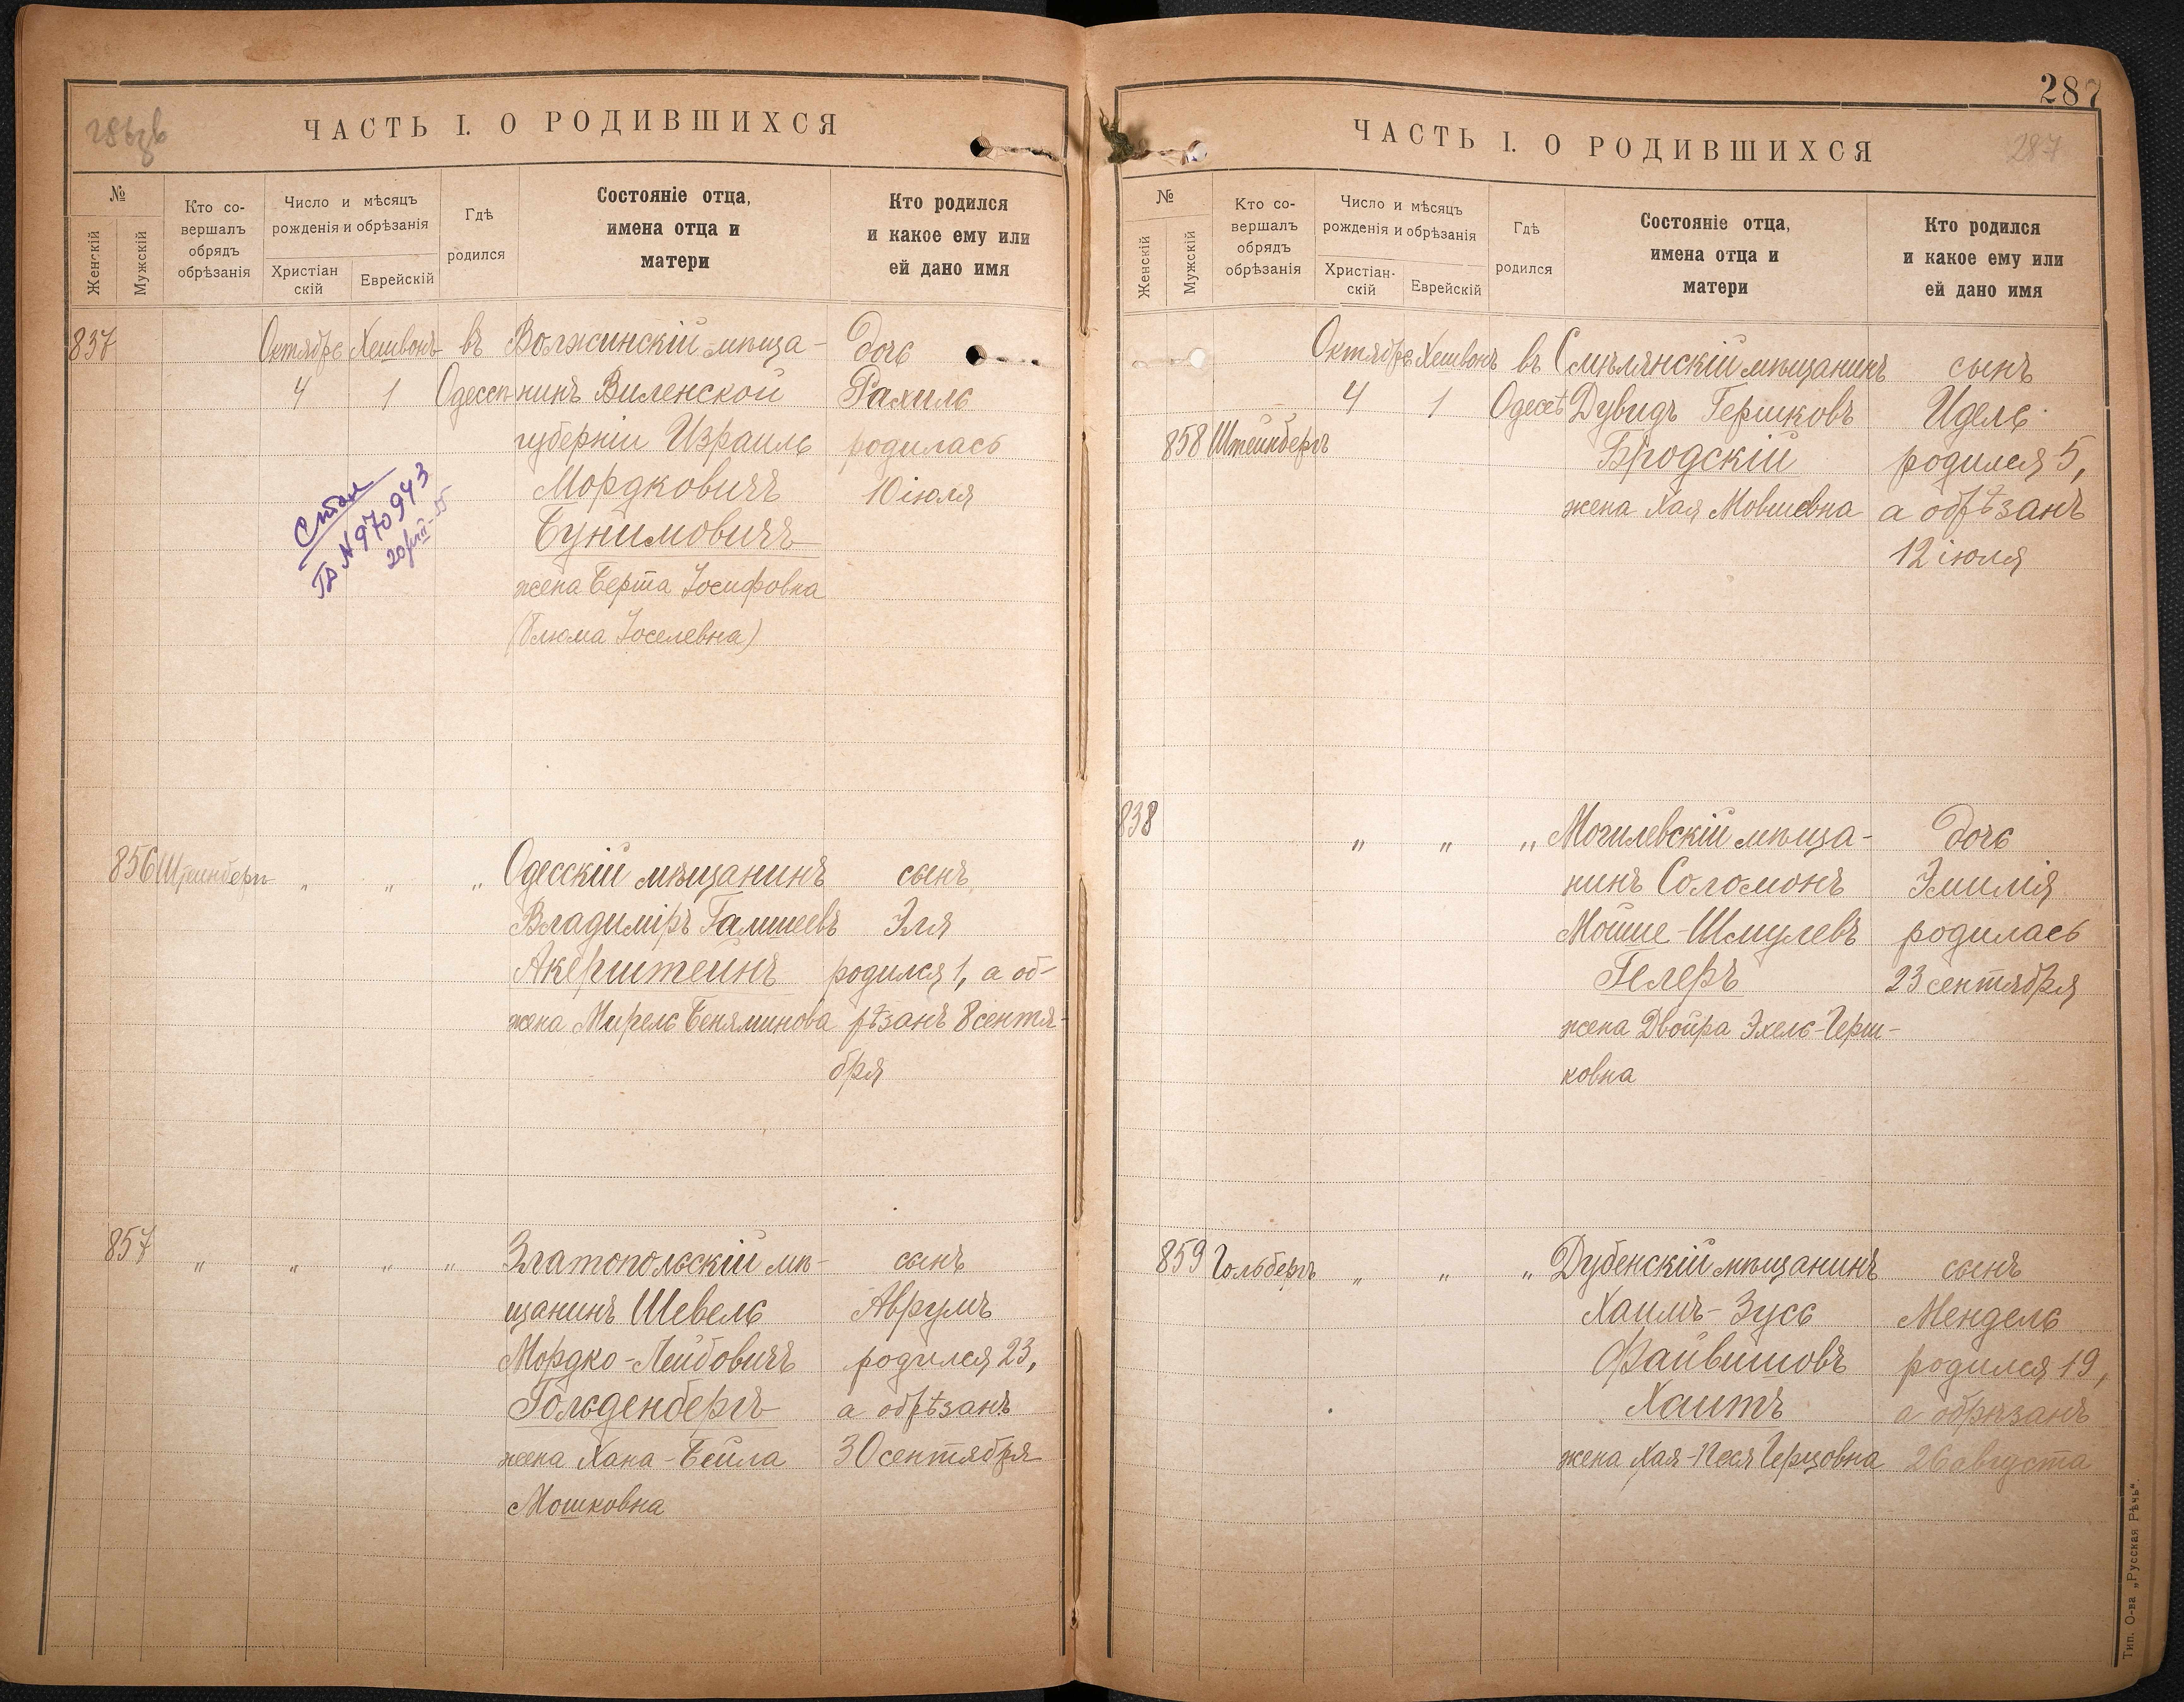 ЧАСТЬ I. О РОДИВШИХСЯ
№
Женскій
Мужскій
Кто со-
вершалъ
обрядъ
обрѣзанія
Число и мѣсяцъ
рожденія и обрѣзанія
Христіан
скій
Еврейскій
Гдѣ
родился
Состояніе отца,
имена отца и
матери
Кто родился
и какое ему или
ей дано имя
837 Октябрь Хешвонъ въ Воложинскій мѣща- дочь
4 1 Одессѣ нинъ Виленской Рахиль
губерніи Израиль родилась
Мордковичъ 10 іюля
Бунимовичъ
жена Берта Іосифовна
(Блюма Іоселевна)
№ 970943
856 Штейнберг „ „ „ Одесскій мѣщанинъ сынъ
Владиміръ Гамшеевъ Эля
Акерштейнъ родился 1, а об-
жена Мирель Беняминова рѣзанъ 8 сентя-
бря
857 „ „ „ „ Златопольскій мѣ- сынъ
щанинъ Шевель Аврумъ
Мордко-Лейбовичъ родился 23,
Гольденбергъ а обрѣзанъ
жена Хана-Бейла 30 сентября
Мошковна
287
ЧАСТЬ I. О РОДИВШИХСЯ
287
№
Женскій
Мужскій
Кто со-
вершалъ
обрядъ
обрѣзанія
Число и мѣсяцъ
рожденія и обрѣзанія
Христіан-
скій
Еврейскій
Гдѣ
родился
Состояніе отца,
имена отца и
матери
Кто родился
и какое ему или
ей дано имя
Октябрь Хешвонъ въ Смѣлянскій мѣщанинъ сынъ
4 1 Одессѣ Дувидъ Гершковъ Идель
858 Штейнбергъ Бродскій родился 5,
жена Хая Мовшевна а обрѣзанъ
12 іюля
838 „ „ „ Могилевскій мѣща- дочь
нинъ Соломонъ Эмилія
Мойше-Шмулевъ родилась
Гелеръ 23 сентября
жена Двойра Эхель-Герш-
ковна
859 Гольбергъ „ „ „ Дубенскій мѣщанинъ сынъ
Хаимъ-Зусь Мендель
Файвишовъ родился 19,
Хаитъ а обрѣзанъ
жена Хая-Песя Герцовна 26 августа
Тип. О-ва „Русская Рѣчь“.